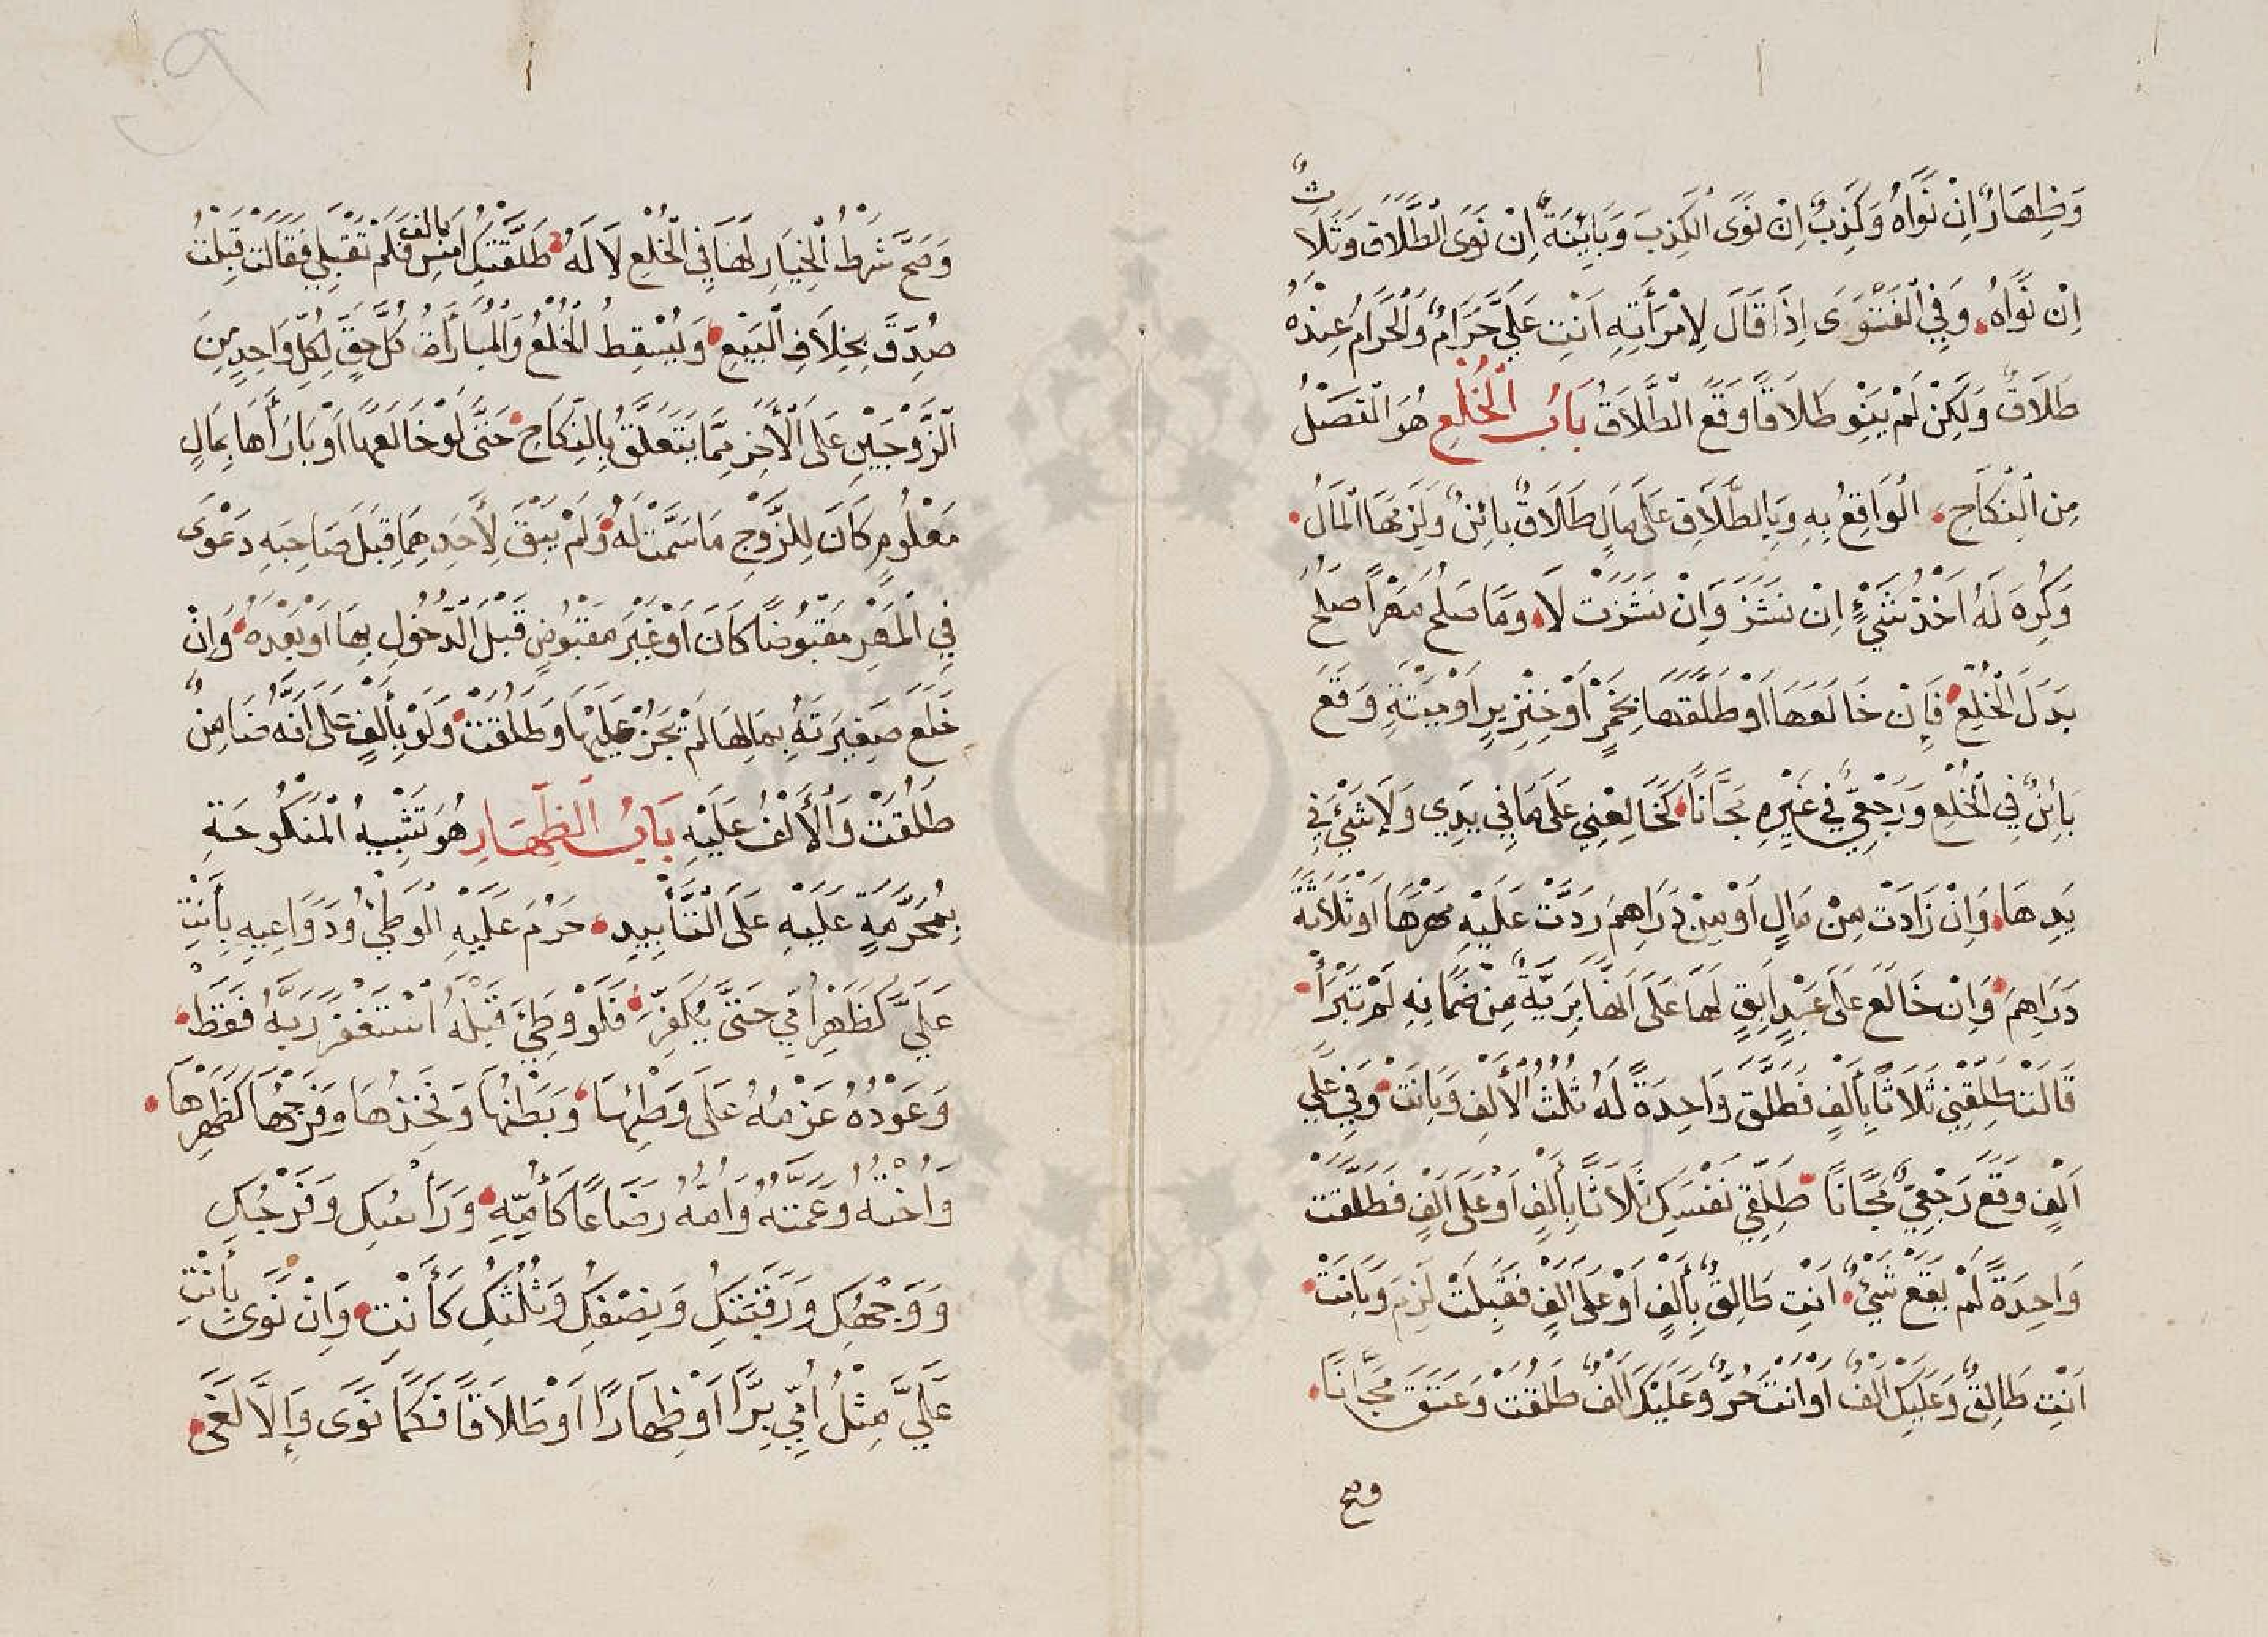 وَظِهَارٌ اِنْ نَوَاهُ وَكَذِبٌ اِنْ نَوَى الْكَذِبَ وَبَايِنَةٌ اِنْ نَوَى الطَّلَاقَ وَثَلَاثٌ
اِنْ نَوَاهُ وَفِي الْفَتْوَى اِذَا قَالَ لِامْرَأَتِهِ اَنْتِ عَلَيَّ حَرَامٌ وَالْحَرَامُ عِنْدَهُ
طَلَاقٌ وَلَكِنْ لَمْ يَنْوِ طَلَاقًا وَقَعَ الطَّلَاقُ بَابُ الْخُلْعِ هُوَ الْفَصْلُ
مِنَ النِّكَاحِ الْوَاقِعُ بِهِ وَبِالطَّلَاقِ عَلَى مَالٍ طَلَاقٌ بَائِنٌ وَلَزِمَهَا الْمَالُ
وَكُرِهَ لَهُ اَخْذُ شَيْءٍ اِنْ نَشَزَ وَاِنْ نَشَزَتْ لَا وَمَا صَلُحَ مَهْرًا صَلُحَ
بَدَلَ الْخُلْعِ فَاِنْ خَالَعَهَا اَوْ طَلَّقَهَا بِخَمْرٍ اَوْ خِنْزِيرٍ اَوْ مَيْتَةٍ وَقَعَ
بَائِنٌ فِي الْخُلْعِ وَرَجْعِيٌّ فِي غَيْرِهِ مَجَّانًا كَخَالِعْنِي عَلَى مَا فِي يَدِي وَلَا شَيْءَ فِي
يَدِهَا وَاِنْ زَادَتْ مِنْ مَالٍ اَوْ مِنْ دَرَاهِمَ رَدَّتْ عَلَيْهِ مَهْرَهَا اَوْ ثَلَاثَةَ
دَرَاهِمَ وَاِنْ خَالَعَ عَلَى عَبْدٍ اٰبِقٍ لَهَا عَلَى اَنَّهَا بَرِيَّةٌ مِنْ ضَمَانِهِ لَمْ تَبْرَأْ
قَالَتْ طَلِّقْنِي ثَلَاثًا بِأَلْفٍ فَطَلَّقَ وَاحِدَةً لَهُ ثُلُثُ الْأَلْفِ وَبَانَتْ وَفِي عَلَى
اَلْفٍ وَقَعَ رَجْعِيٌّ مَجَّانًا طَلِّقِي نَفْسَكِ ثَلَاثًا بِأَلْفٍ اَوْ عَلَى اَلْفٍ فَطَلَّقَتْ
وَاحِدَةً لَمْ يَقَعْ شَيْءٌ اَنْتِ طَالِقٌ بِأَلْفٍ اَوْ عَلَى اَلْفٍ فَقَبِلَتْ لَزِمَ وَبَانَتْ
اَنْتِ طَالِقٌ وَعَلَيْكِ اَلْفٌ اَوْ اَنْتَ حُرٌّ وَعَلَيْكَ اَلْفٌ طَلُقَتْ وَعَتَقَ مَجَّانًا
وصح
وَصَحَّ شَرْطُ الْخِيَارِ لَهَا فِي الْخُلْعِ لَا لَهُ طَلَّقْتُكِ اَمْسِ بِالْفٍ فَلَمْ تَقْبَلِي فَقَالَتْ قَبِلْتُ
صُدِّقَ بِخِلَافِ الْبَيْعِ وَيُسْقِطُ الْخُلْعُ وَالْمُبَارَأَةُ كُلَّ حَقٍّ لِكُلِّ وَاحِدٍ مِنَ
الزَّوْجَيْنِ عَلَى الْاٰخَرِ مِمَّا يَتَعَلَّقُ بِالنِّكَاحِ حَتَّى لَوْ خَالَعَهَا اَوْ بَارَأَهَا بِمَالٍ
مَعْلُومٍ كَانَ لِلزَّوْجِ مَا سَمَّتْ لَهُ وَلَمْ يَبْقَ لِأَحَدِهِمَا قِبَلَ صَاحِبِهِ دَعْوَى
فِي الْمَهْرِ مَقْبُوضًا كَانَ اَوْ غَيْرَ مَقْبُوضٍ قَبْلَ الدُّخُولِ بِهَا اَوْ بَعْدَهُ وَاِنْ
خَلَعَ صَغِيرَتَهُ بِمَالِهَا لَمْ يَجُزْ عَلَيْهَا وَطَلُقَتْ وَلَوْ بِأَلْفٍ عَلَى اَنَّهُ ضَامِنٌ
طَلُقَتْ وَالْأَلْفُ عَلَيْهِ بَابُ الظِّهَارِ هُوَ تَشْبِيهُ الْمَنْكُوحَةِ
بِمُحَرَّمَةٍ عَلَيْهِ عَلَى التَّأْبِيدِ حَرُمَ عَلَيْهِ الْوَطْئُ وَدَوَاعِيهِ بِأَنْتِ
عَلَيَّ كَظَهْرِ اُمِّي حَتَّى يُكَفِّرَ فَلَوْ وَطِئَ قَبْلَهُ اسْتَغْفَرَ رَبَّهُ فَقَطْ
وَعَوْدُهُ عَزْمُهُ عَلَى وَطْئِهَا وَبَطْنُهَا وَفَخِذُهَا وَفَرْجُهَا كَظَهْرِهَا
وَاُخْتُهُ وَعَمَّتُهُ وَاُمُّهُ رَضَاعًا كَأُمِّهِ وَرَأْسُكِ وَفَرْجُكِ
وَوَجْهُكِ وَرَقَبَتُكِ وَنِصْفُكِ وَثُلُثُكِ كَأَنْتِ وَاِنْ نَوَى بِأَنْتِ
عَلَيَّ مِثْلُ اُمِّي بِرًّا اَوْ ظِهَارًا اَوْ طَلَاقًا فَكَمَا نَوَى وَاِلَّا لَغَى